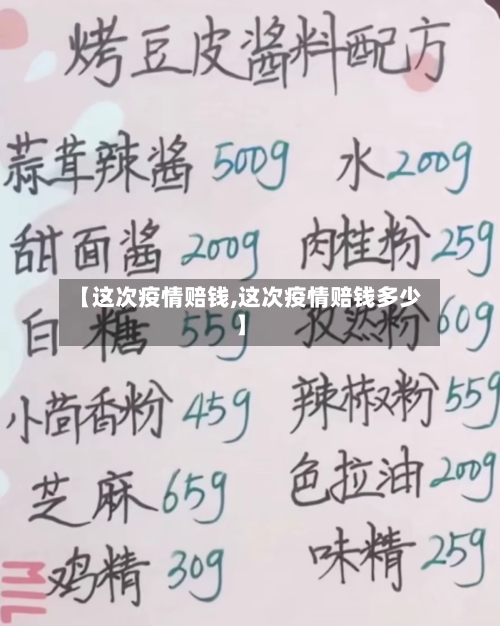 烤豆皮酱料配方
蒜茸辣酱 500g 水 200g
甜面酱 200g 肉桂粉 25g
【这次疫情赔钱,这次疫情赔钱多少
】
白糖 55g 孜然粉 60g
小茴香粉 45g 辣椒粉 55g
芝麻 65g 色拉油 200g
鸡精 30g 味精 25g
MIL